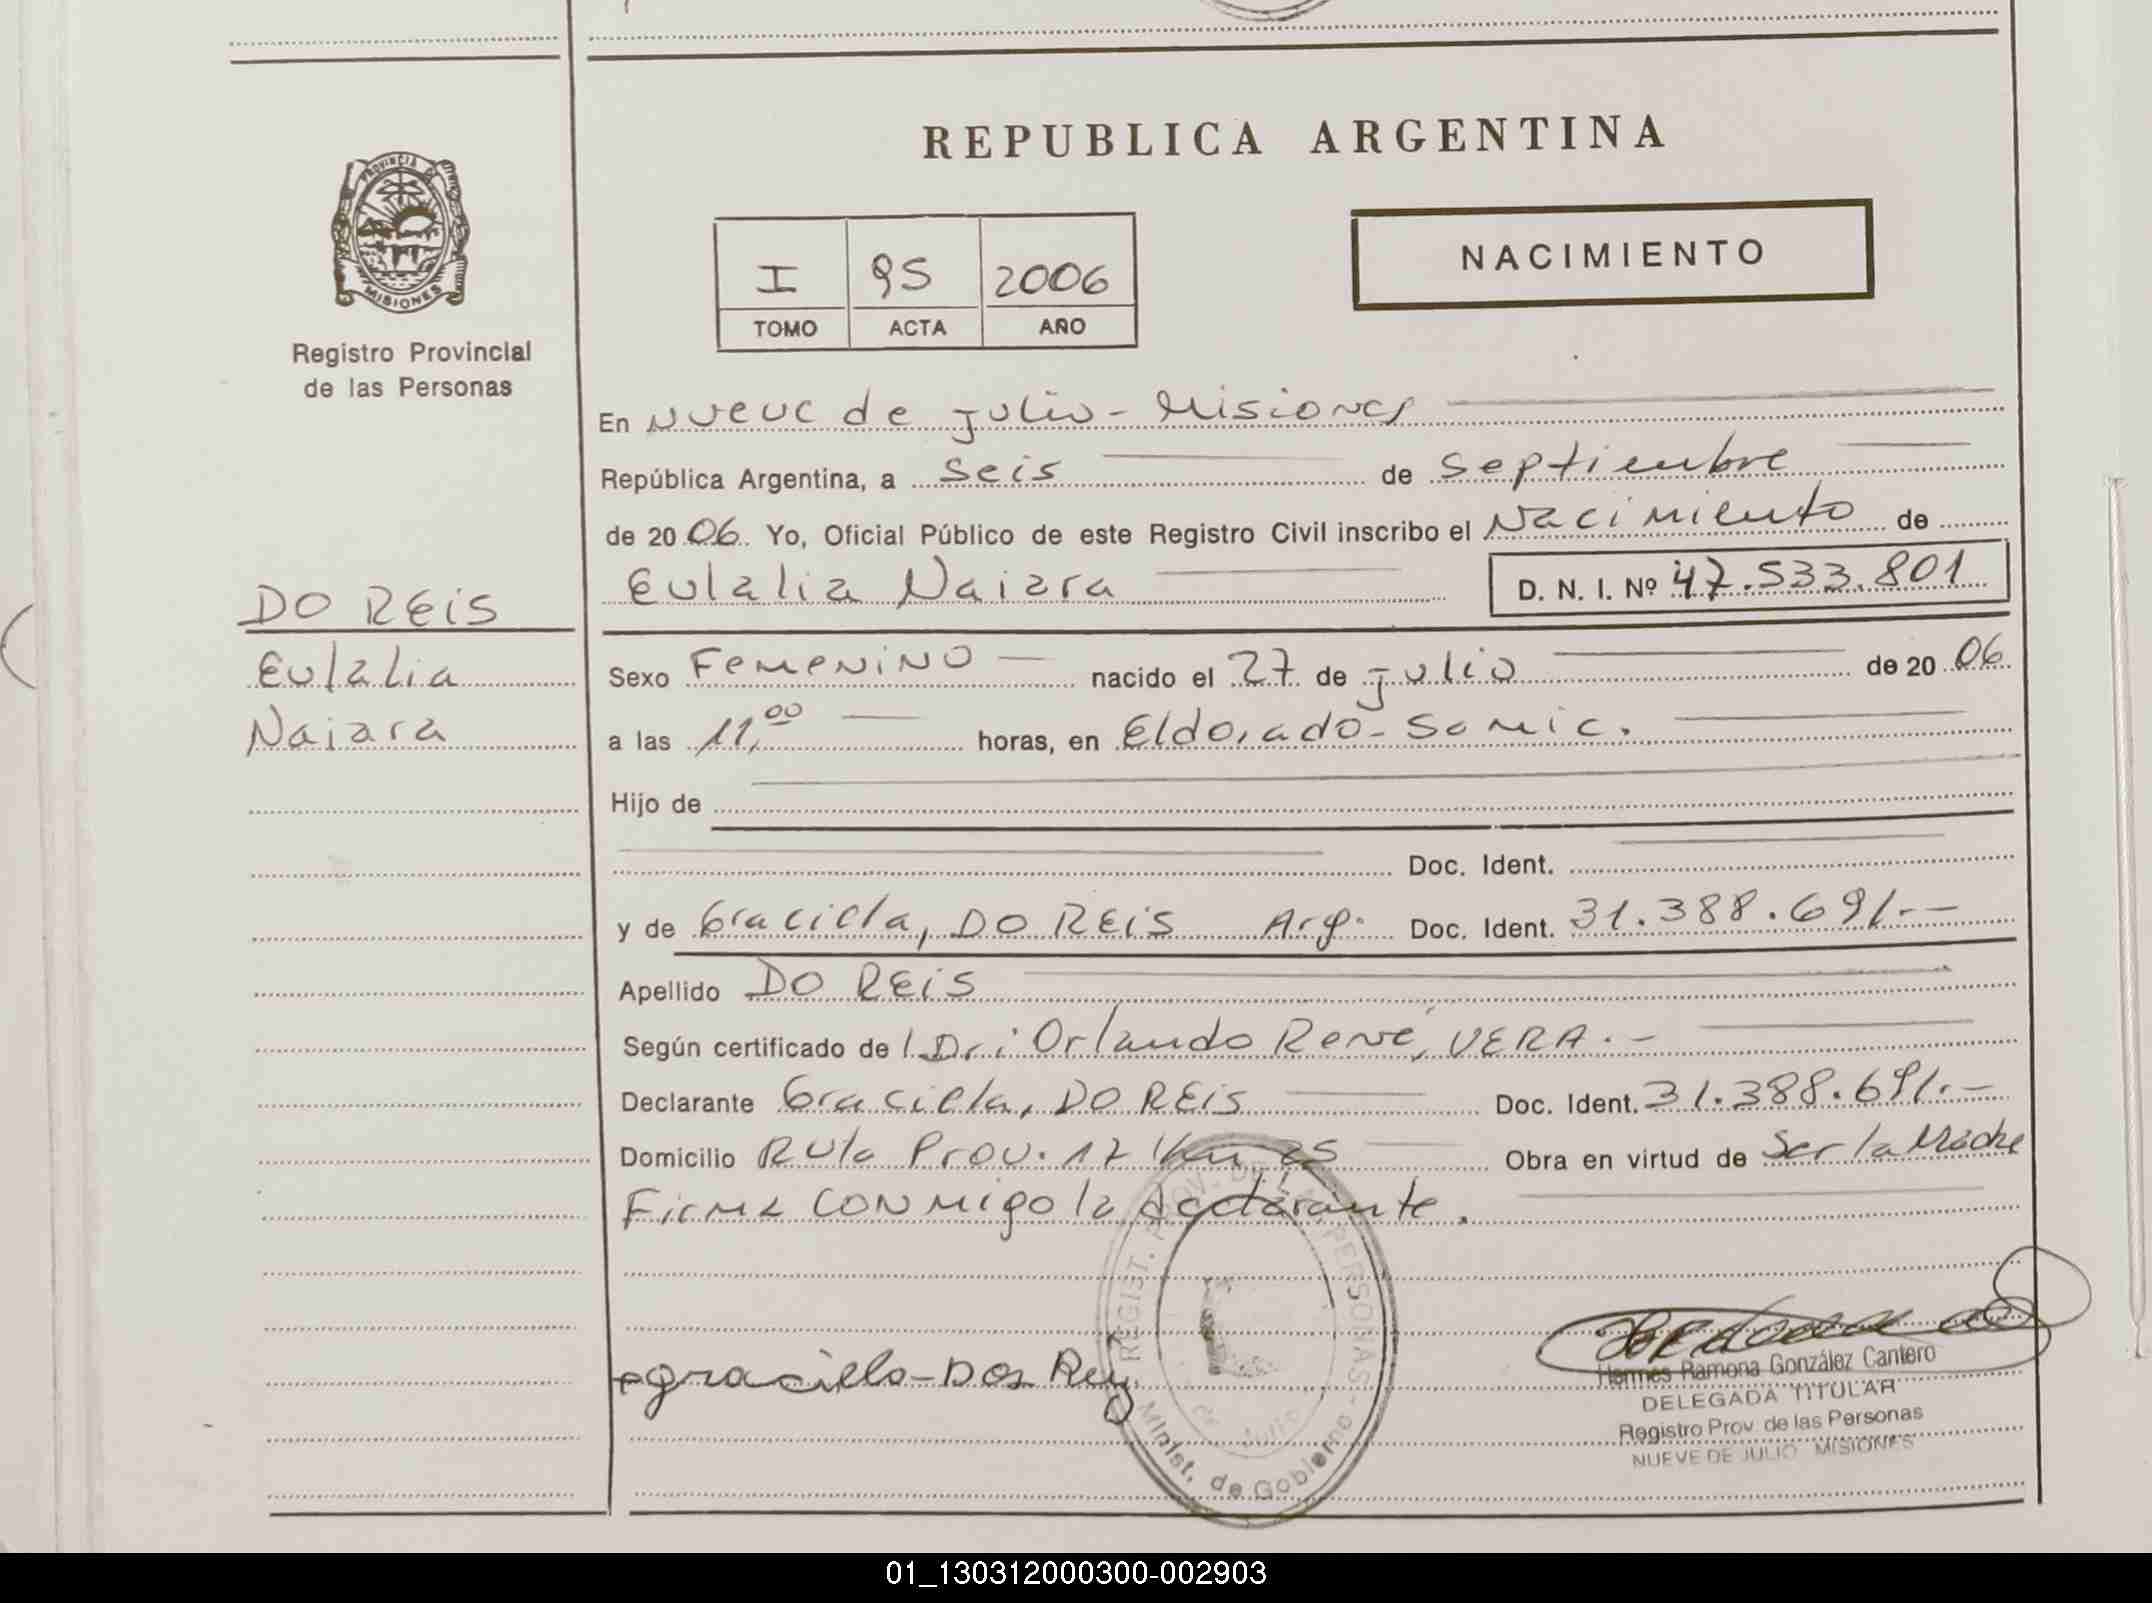 REPUBLICA ARGENTINA
PROVINCIA DE
MISIONES
Registro Provincial
de las Personas
I 95 2006
TOMO ACTA AÑO
NACIMIENTO
En Nueve de julio - Misiones
República Argentina, a Seis de Septiembre
de 2006. Yo, Oficial Público de este Registro Civil inscribo el Nacimiento de
Eulalia Naiara D. N. I. Nº 47.533.801
DO REIS
Eulalia
Naiara
Sexo Femenino nacido el 27 de julio de 2006
a las 11,00 horas, en Eldorado - Samic.
Hijo de
Doc. Ident.
y de Graciela, DO REIS Arg. Doc. Ident. 31.388.691.-
Apellido DO REIS
Según certificado de Dr: Orlando René, VERA.-
Declarante Graciela, DO REIS Doc. Ident. 31.388.691.-
Domicilio Ruta Prov. 17 Km 25 Obra en virtud de Ser la Madre
Firma conmigo la declarante.
REGIST. PROV. DE LAS PERSONAS - Minist. de Gobierno -
de Julio
graciela - Dos Rey
Hermes Ramona González Cantero
DELEGADA TITULAR
Registro Prov. de las Personas
NUEVE DE JULIO MISIONES
01_130312000300-002903